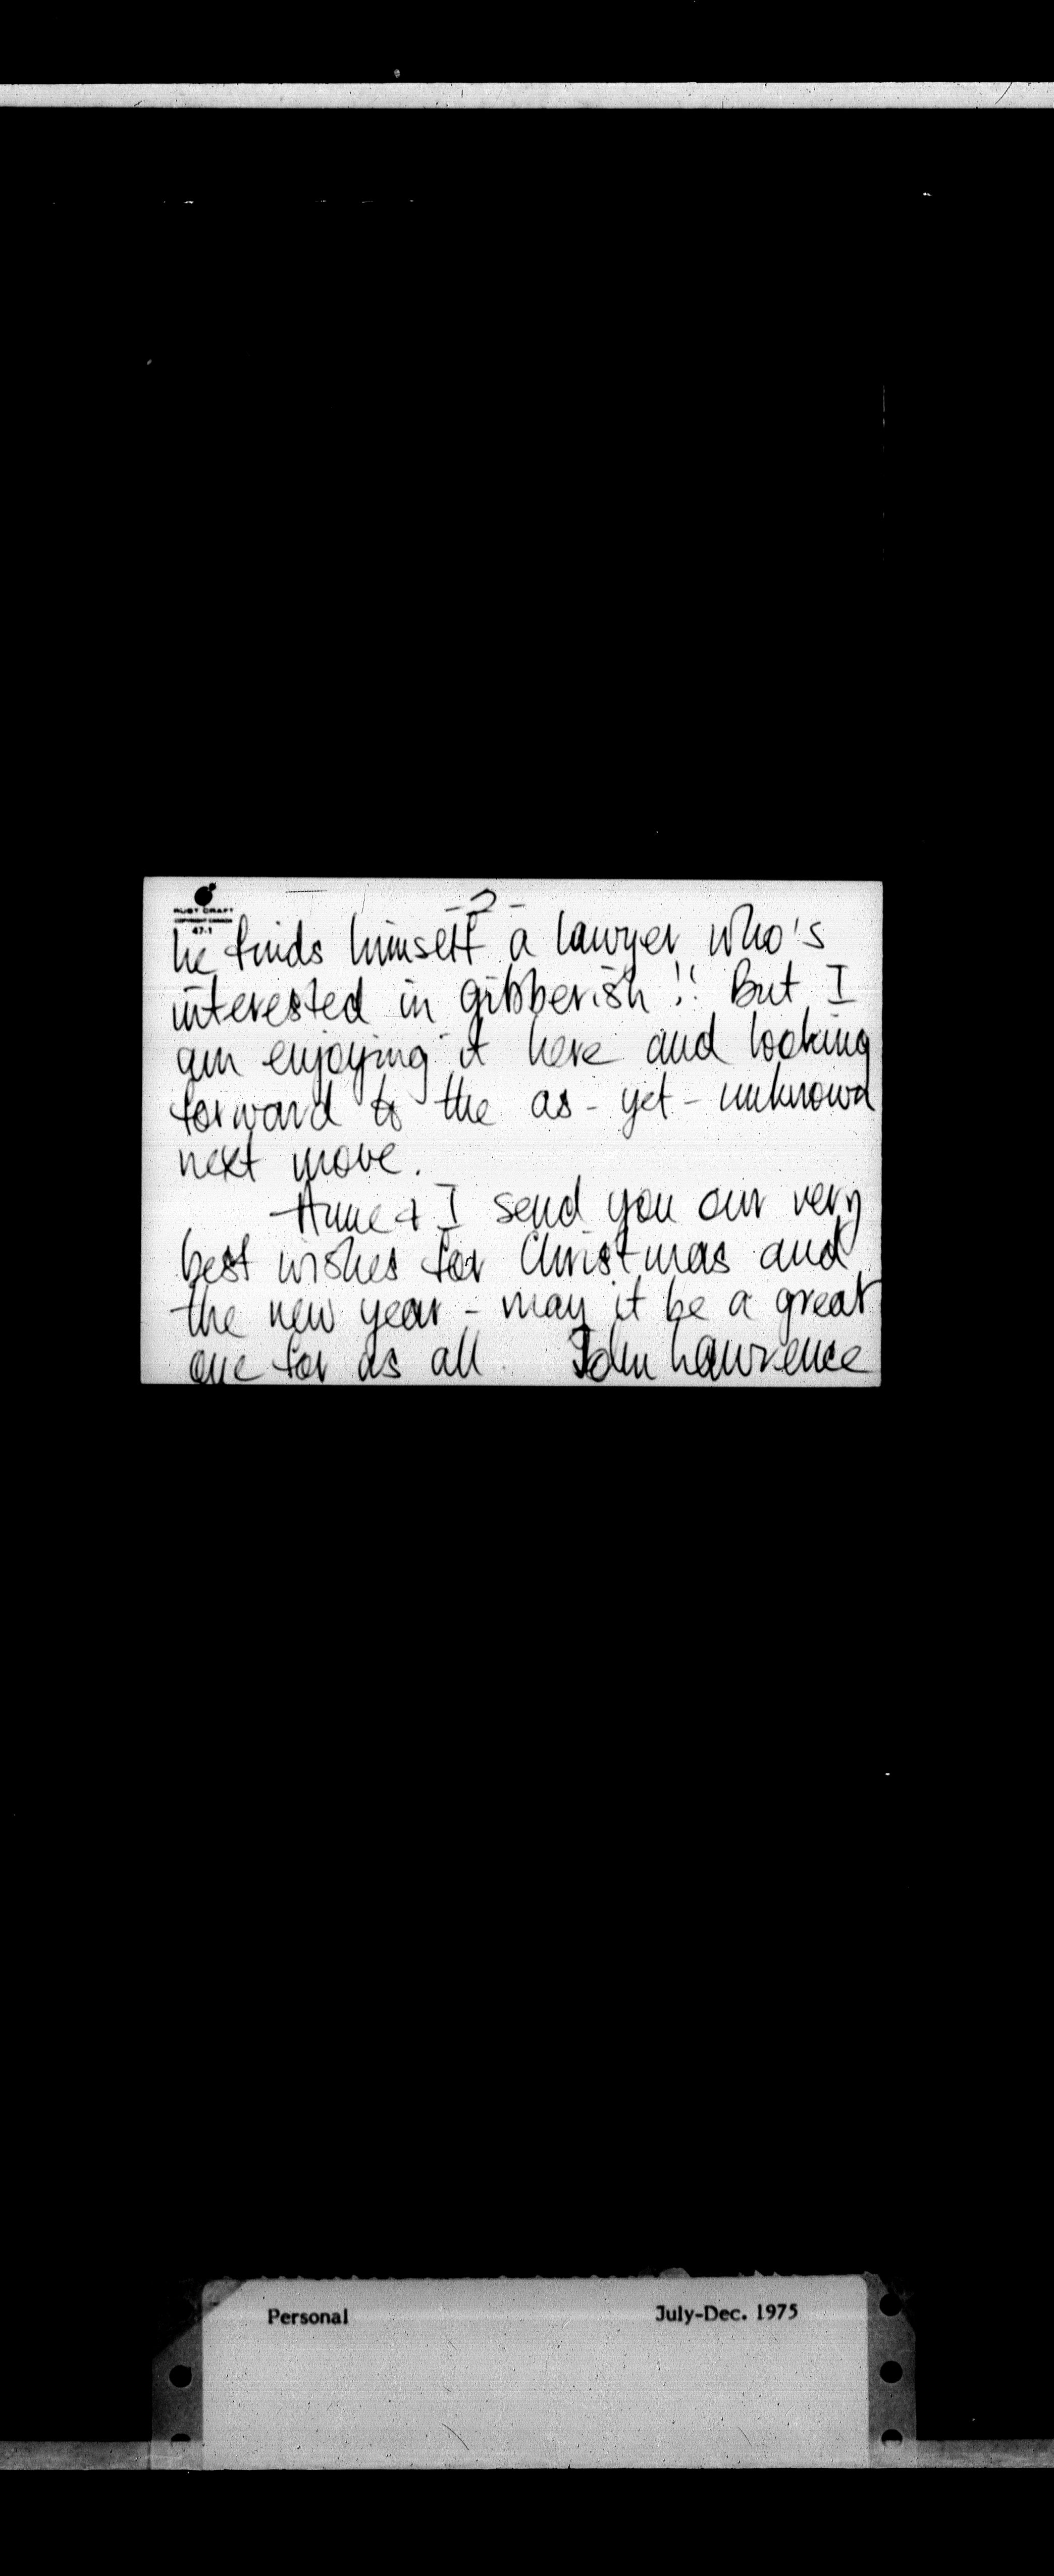 RUST CRAFT
COPYRIGHT CANADA
47-1
- 2 -
he finds himself a lawyer who's
interested in gibberish!! But I
am enjoying it here and looking
forward to the as-yet-unknown
next move.
Anne & I send you our very
best wishes for Christmas and
the new year - may it be a great
one for us all. John Lawrence
Personal July-Dec. 1975